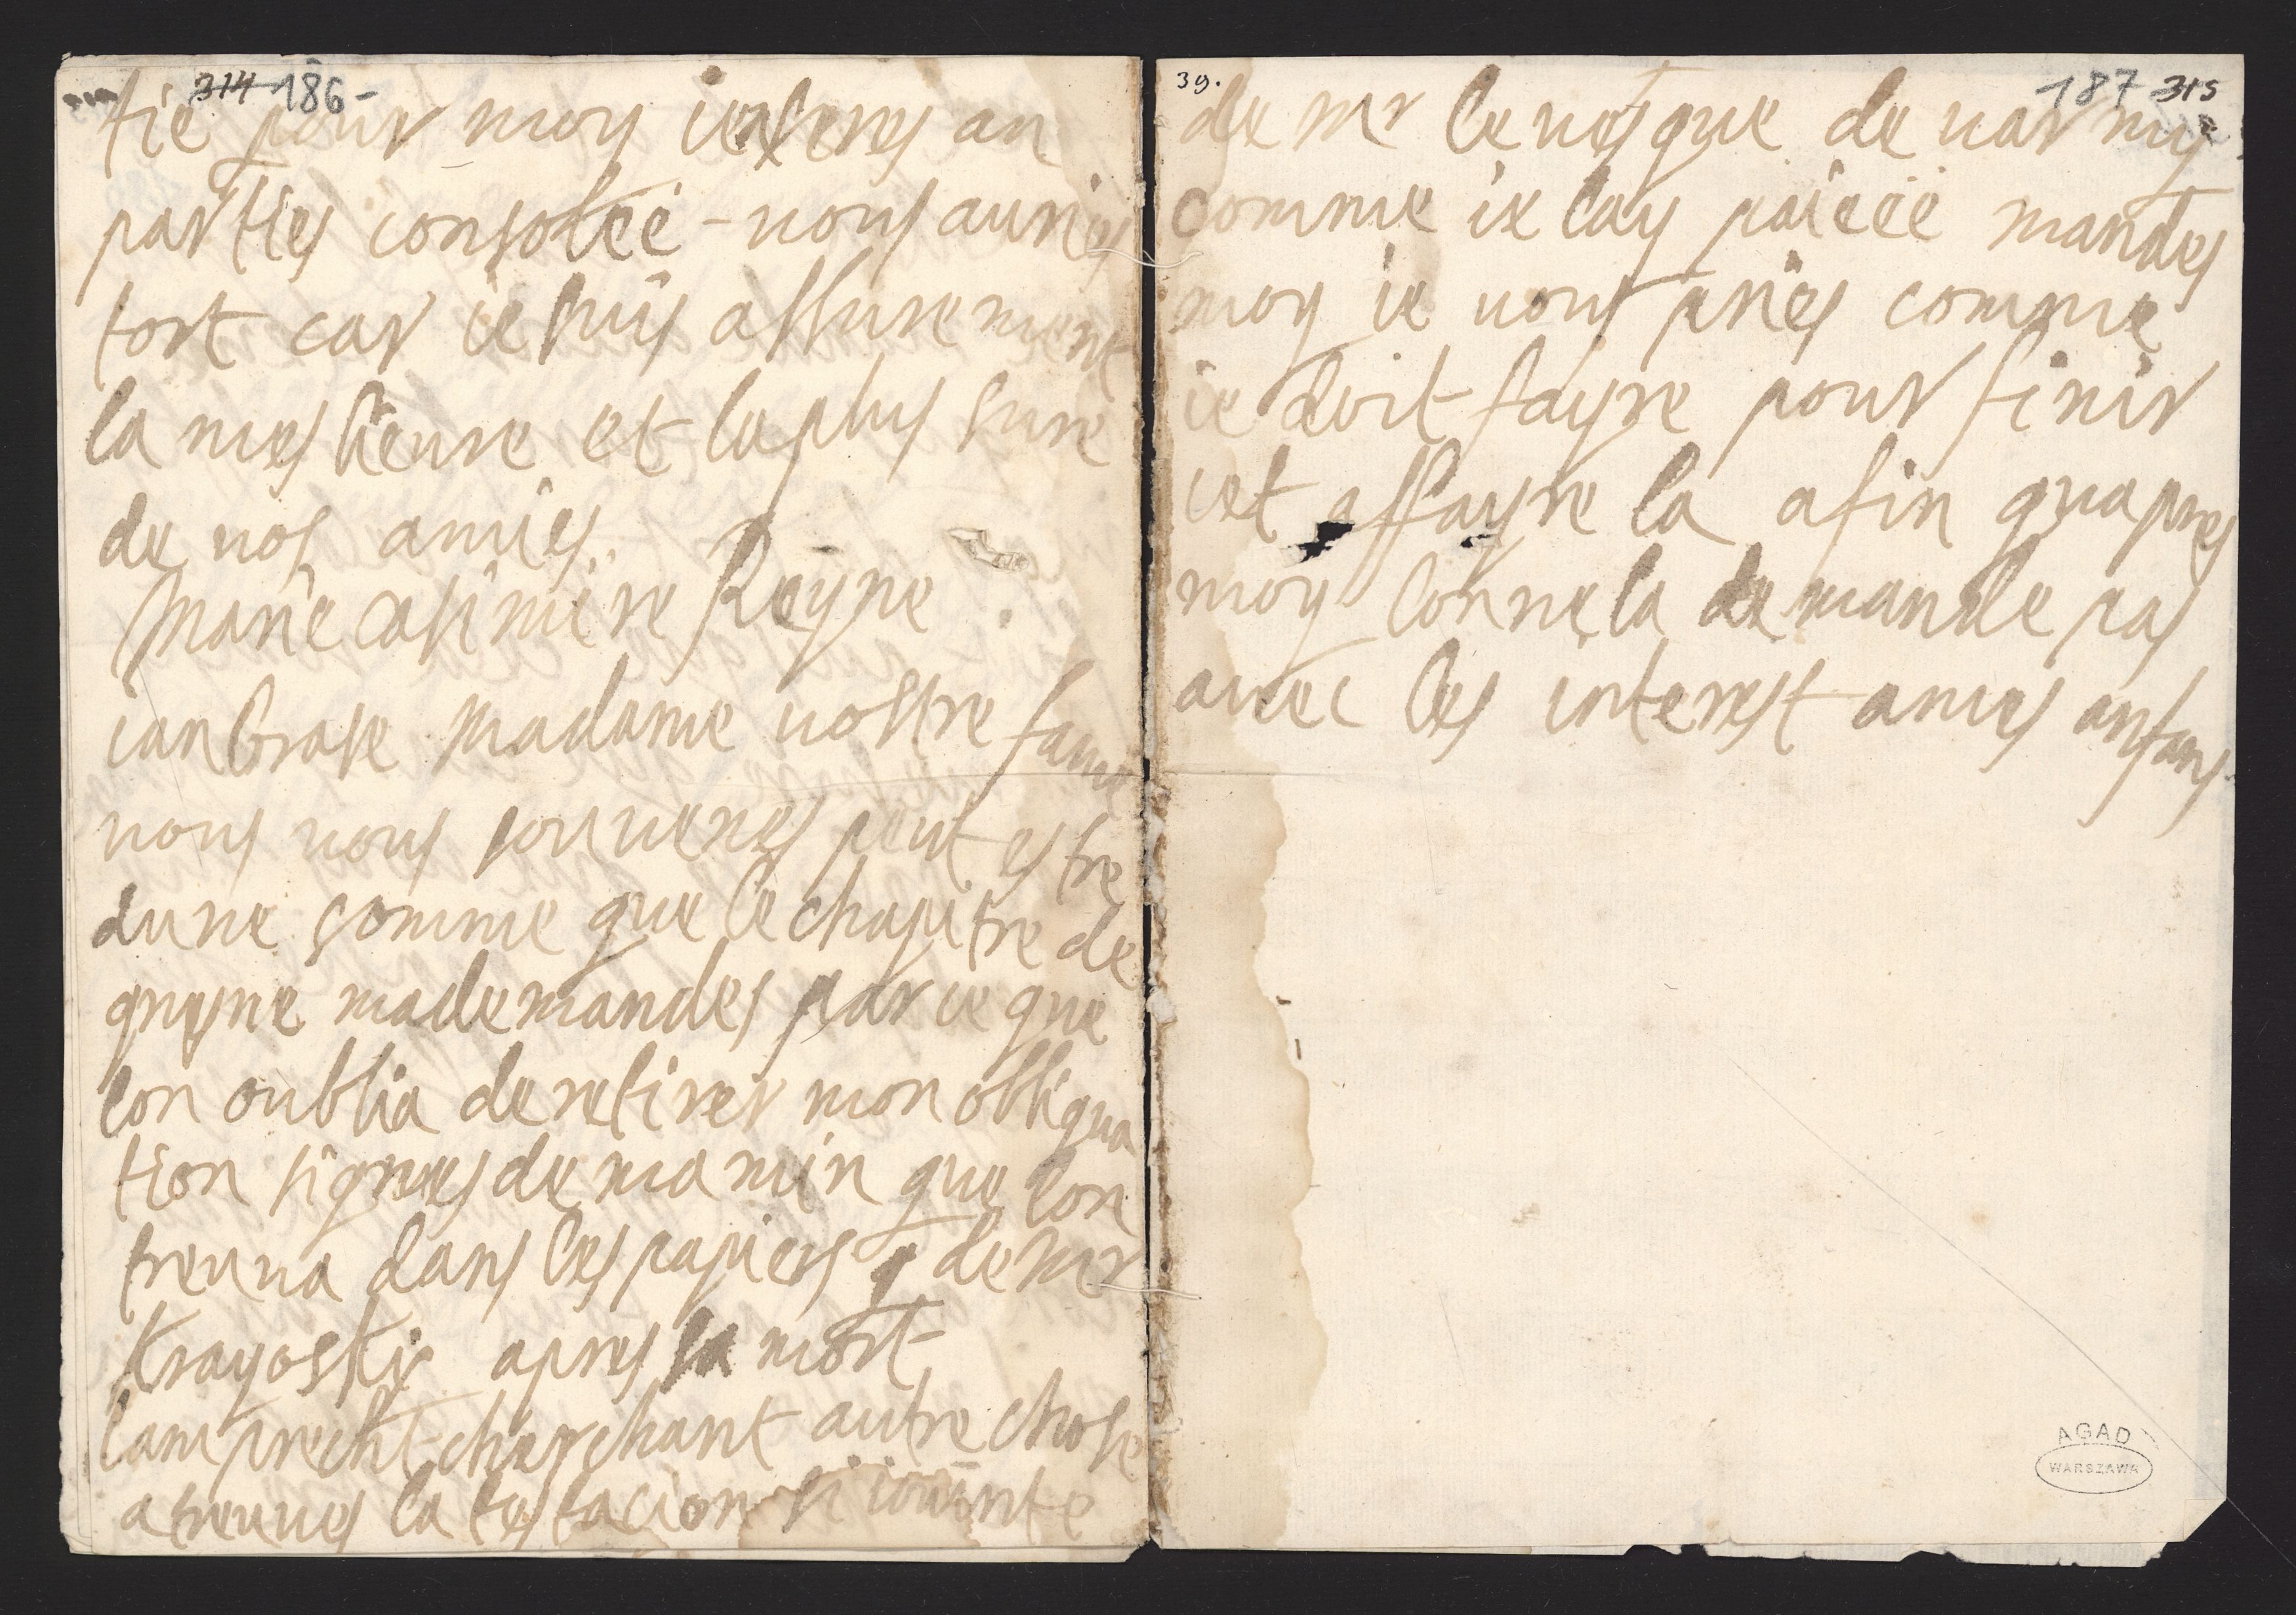 314 186-
tié pour moy ie seres an
parties consoleé - vous auries
tort car ie suis assurement
la mes lieure et la plus sure
de vos amies.
Marie Casimire Reyne
ianbrase Madame vostre fame
vous vous souvenes peut estre
dune somme que le chapitre de
gnysne ma demandes par ce que
lon oublia de retirer mon obligua
tion signes de ma min que lon
treuva dans les papiers de Mr
Krayoski apres sa mort
lamprecht charchant autre chose
a treuves la testacion si iointe
39. 187 315
de Mr levesque de var my
comme ie lay païeéé mandes
moy ie vous pries comme
ie doit fayre pour finir
cet affayre la afin quapres
moy lon ne la demande pas
avec les interest a mes anfans
AGAD
WARSZAWA